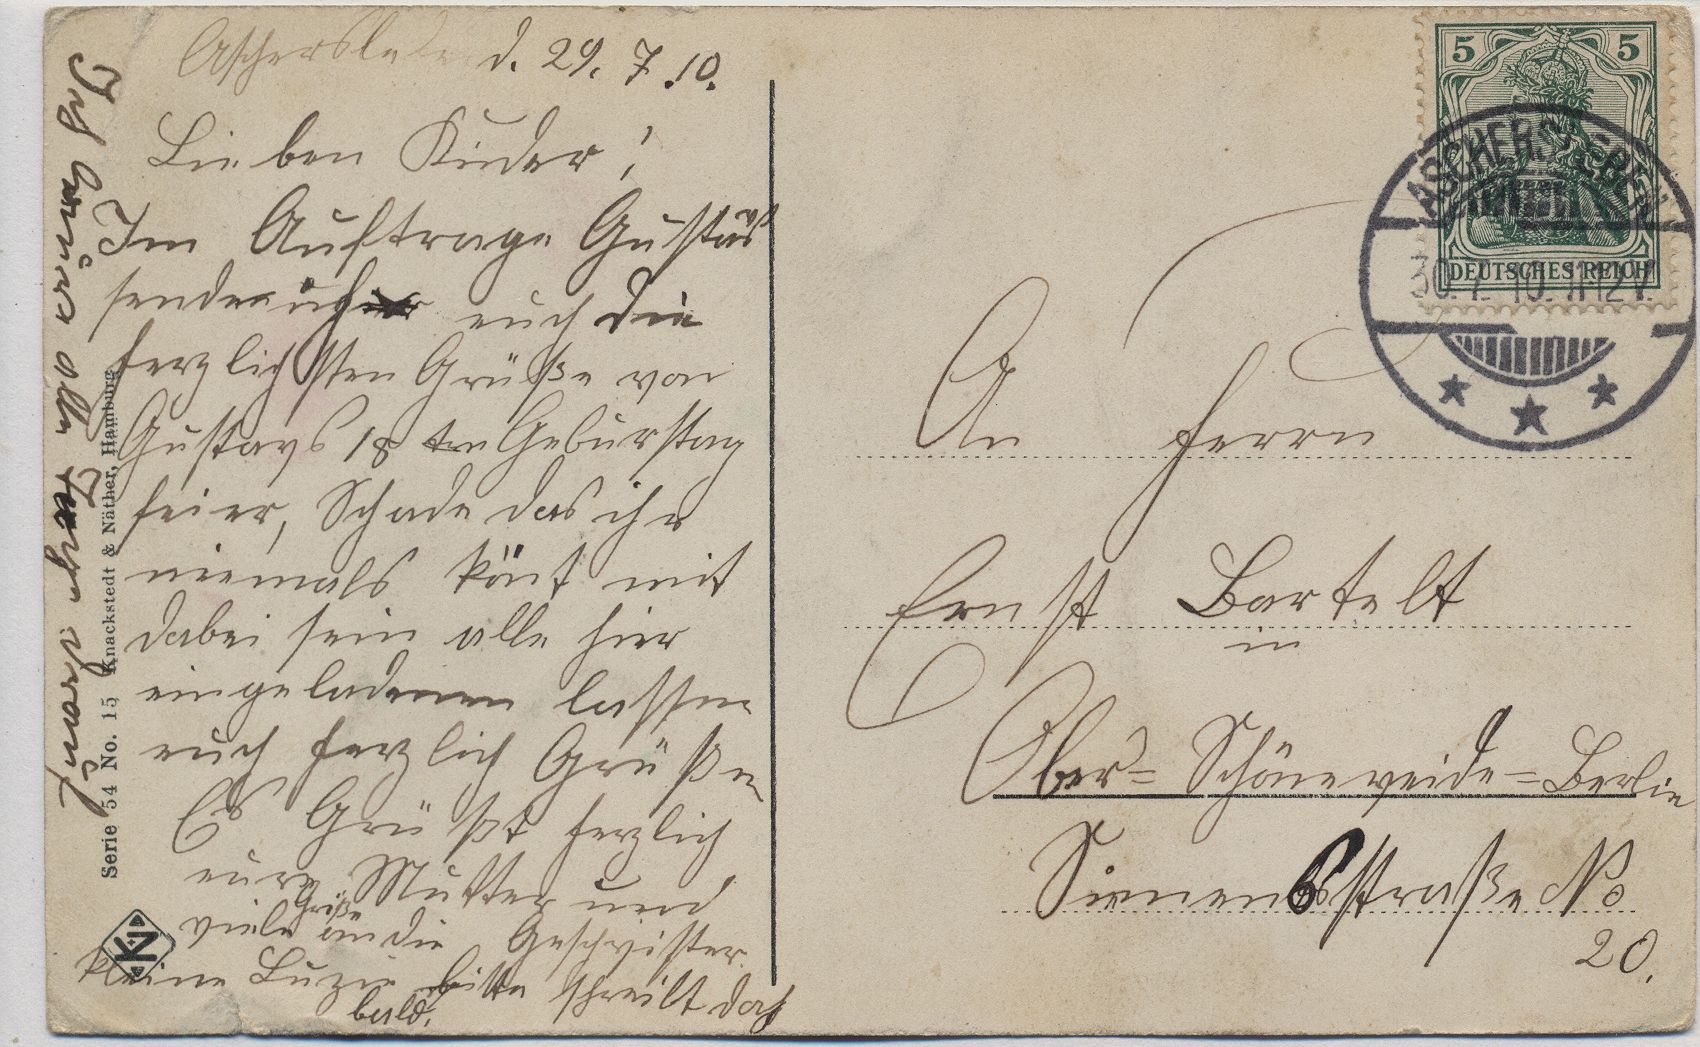 Aschersleben d. 29. 7. 10.
Lieben Kinder!
Im Auftrage Gustavs
sende ich euch die
herzlichsten Grüße von
Gustavs 18 ten Geburstag
feier, Schade das ihr
niemals könt mit
dabei sein alle hier
eingeladenen lassen
euch herzlich Grüßen
Es Grüßt herzlich
eure Mutter und
viele Grüße an die Geschwister.
kleine Luzie bitte schreibt doch
bald.
Ich
alle
Serie 54 No. 15 Knackstedt & Näther, Hamburg
KN
5 5
DEUTSCHES REICH
ASCHERSLEBEN
30.7.10.11-12V.
An Herrn
Ernst Bartelt
in
Ober=Schöneweide=Berlin
Siemensstraße No
20.